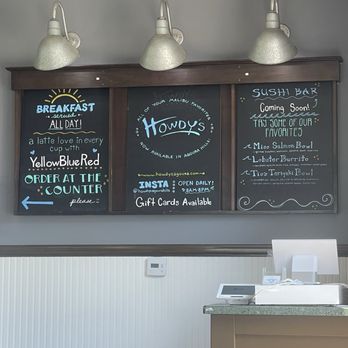 BREAKFAST
served
ALL DAY!
a latte love in every
cup with
YellowBlueRed
ORDER AT THE
COUNTER
please
ALL OF YOUR MALIBU FAVORITES
HOWDY'S
NOW AVAILABLE IN AGOURA HILLS
INSTA
OPEN DAILY!
8AM-8PM
Gift Cards Available
SUSHI BAR
Coming Soon!
TRY SOME OF OUR
FAVORITES
Miso Salmon Bowl
Lobster Burrito
Tiso Teriyaki Bowl